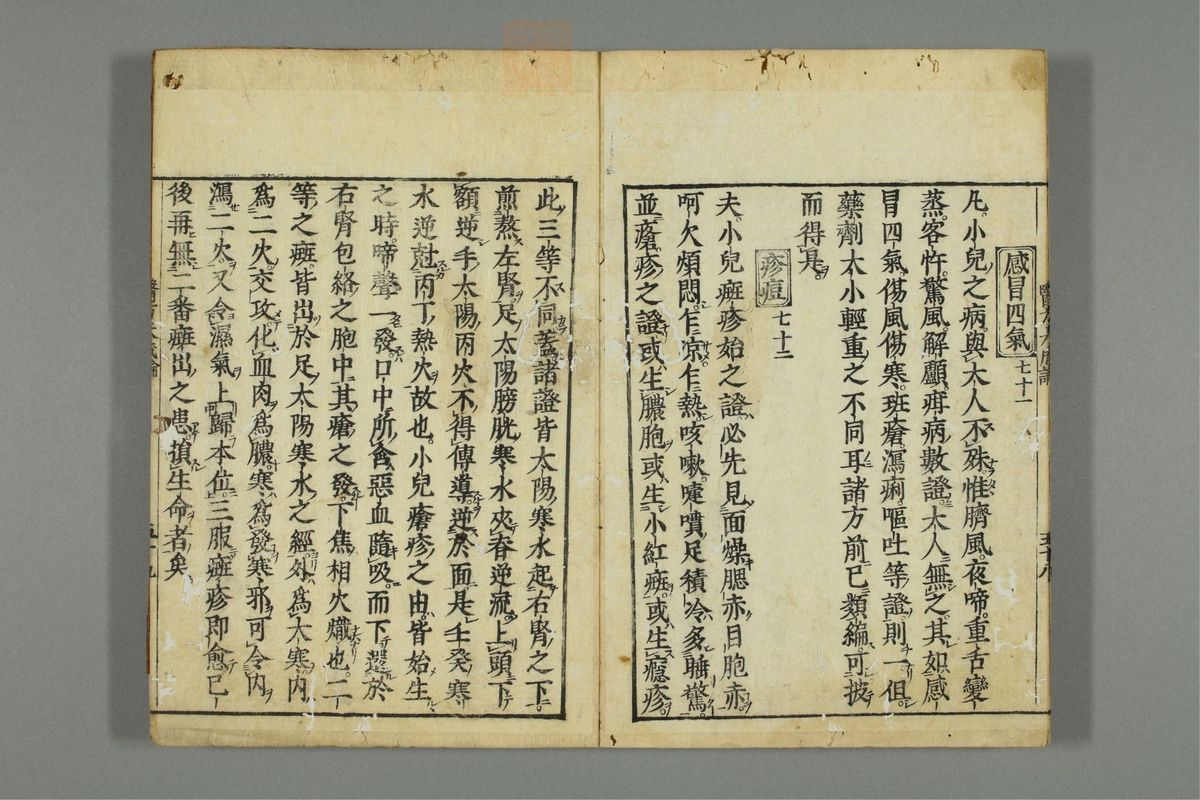 感冒四氣 七十一
凡小兒之病與大人不殊惟臍風夜啼重舌變
蒸客忤驚風解顱疳病數證大人無之其如感
冒四氣傷風傷寒班瘡瀉痢嘔吐等證則一但
藥劑大小輕重之不同耳諸方前已類編可披
而得具
疹痘 七十二
夫小兒班疹始之證必先見面燥腮赤目胞赤
呵欠煩悶乍凉乍熱咳嗽嚏噴足積冷多睡驚
並瘡疹之證或生膿胞或生小紅班或生癮疹
此三等不同蓋諸證皆太陽寒水起右腎之下
煎熬左腎足太陽膀胱寒水夾脊逆流上頭下
額逆手太陽丙火不得傳導逆於面是壬癸寒
水逆尅丙丁熱火故也小兒瘡疹之由皆始生
之時啼聲一發口中所含惡血隨吸而下還於
右腎包絡之胞中其瘡之發下焦相火熾也二
等之班皆出於足太陽寒水之經外爲大寒内
爲二火交攻化血肉爲膿寒爲發寒邪可令内
瀉二火又令濕氣上歸本位三服班疹即愈已
後再無二番班出之患損生命者矣